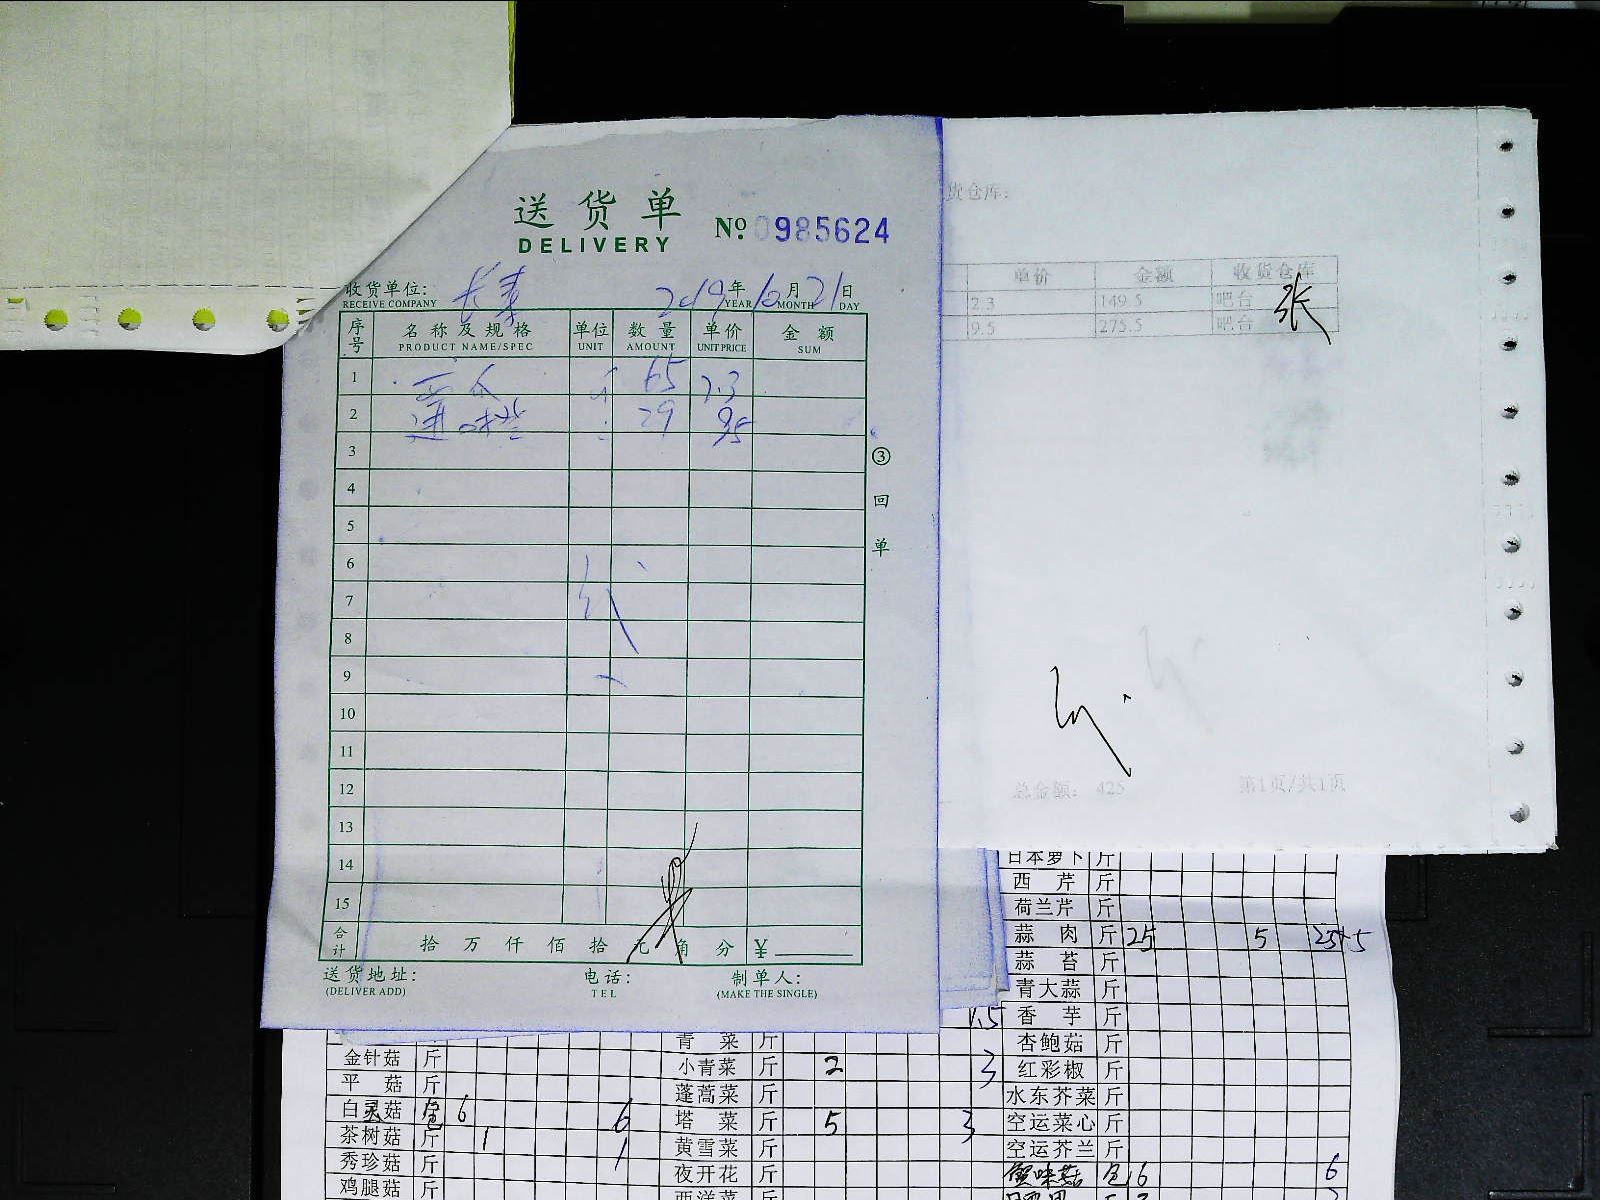 送货单
DELIVERY
№ 0985624
收货单位: 长寿
RECEIVE COMPANY
2019年10月21日
YEAR MONTH DAY
序号 名称及规格 单位 数量 单价 金额
PRODUCT NAME/SPEC UNIT AMOUNT UNIT PRICE SUM
1 65 2.3
2 29 9.5
3
4
5
6
7
8
9
10
11
12
13
14
15
合计 拾 万 仟 佰 拾 元 角 分 ¥
③ 回 单
送货地址: 电话: 制单人:
(DELIVER ADD) TEL (MAKE THE SINGLE)
货仓库:
单价 金额 收货仓库
2.3 149.5 吧台
9.5 275.5 吧台
张
总金额: 425 第1页/共1页
日本萝卜 斤
西芹 斤
荷兰芹 斤
蒜肉 斤 25 5 25+5
蒜苔 斤
青大蒜 斤
香芋 斤
杏鲍菇 斤
红彩椒 斤
水东芥菜 斤
空运菜心 斤
空运芥兰 斤
蟹味菇 包 6 6
1.5
青菜 斤
小青菜 斤 2 3
蓬蒿菜 斤
塔菜 斤 5 3
黄雪菜 斤
夜开花 斤
西洋菜 斤
金针菇 斤
平菇 斤
白灵菇 包 6 6
茶树菇 斤 1 1
秀珍菇 斤
鸡腿菇 斤